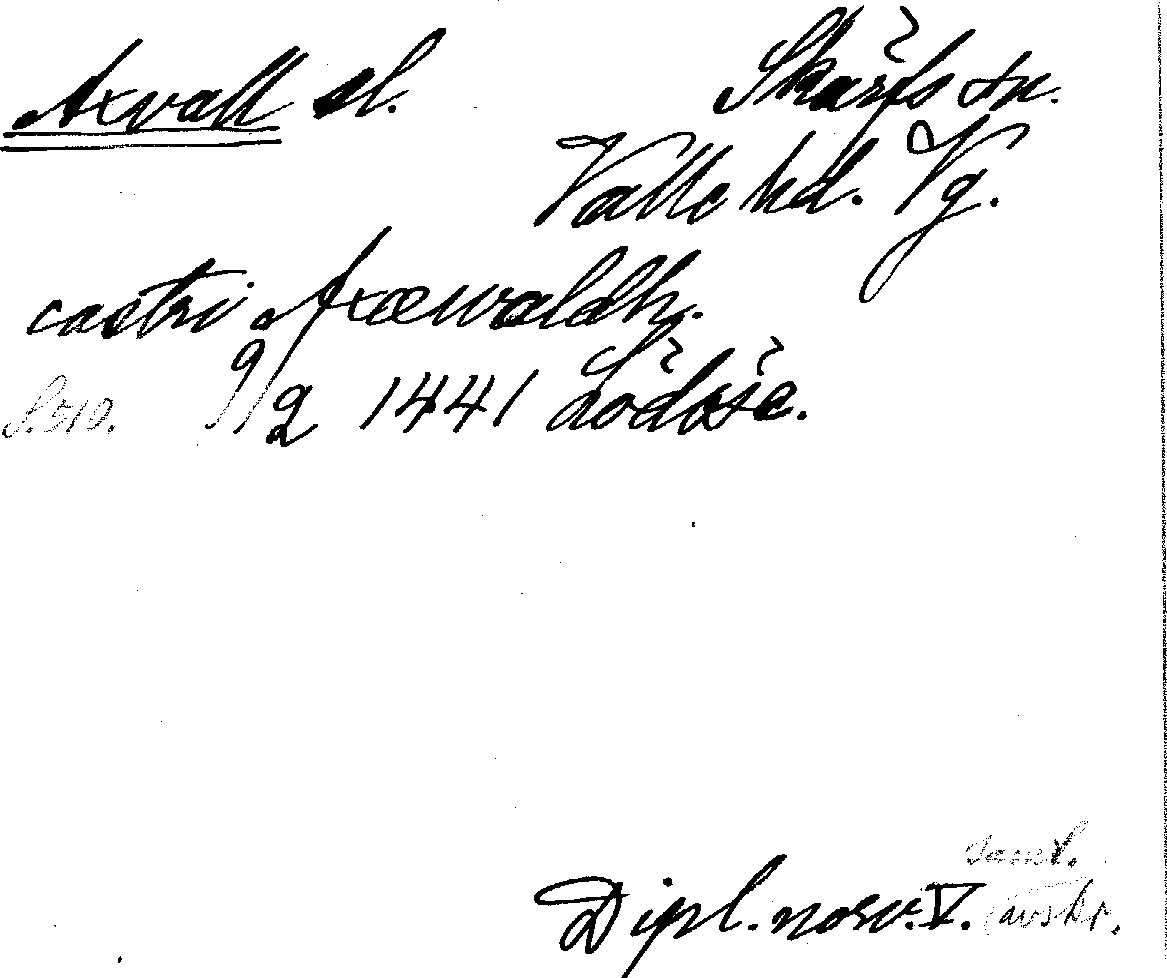 Axvall sl. Skärfs sn.
Valle hd. Vg.
castri Axewaldh.
S. 510. 9/2 1441 Lödöse.
saml.
Dipl. norv. V. (avskr.